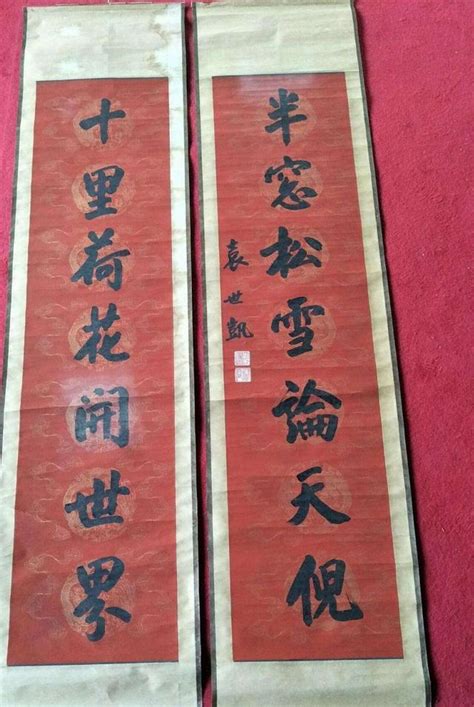 十里荷花開世界
半窓松雪論天倪
袁世凱